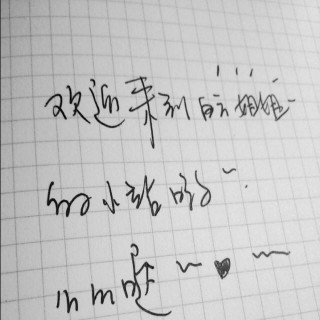 欢迎来到皖姐姐~
的小站哟~.
mm哒~♥~